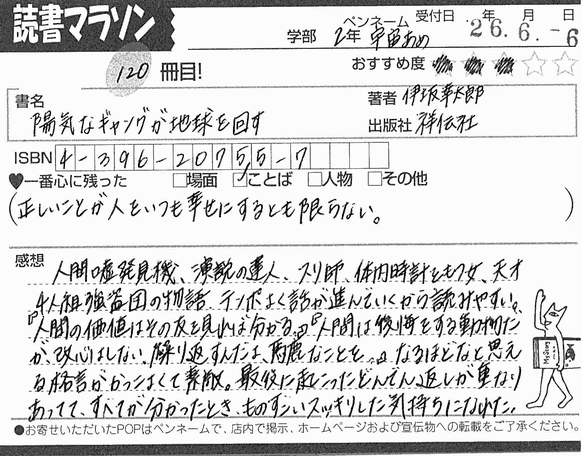 読書マラソン
学部 2年 ペンネーム 宇宙あめ 受付日 26年6月-6日
120 冊目!
おすすめ度 ★★★☆☆
書名 陽気なギャングが地球を回す
著者 伊坂幸太郎
出版社 祥伝社
ISBN 4-396-20755-7
♥一番心に残った □場面 ☑ことば □人物 □その他
(正しいことが人をいつも幸せにするとも限らない。)
感想
人間嘘発見機、演説の達人、スリ師、体内時計をもつ女、天才
4人組強盗団の物語。テンポよく話が進んでいくから読みやすい。
『人間の価値はその友を見れば分かる。』『人間は後悔をする動物だ
が、改心はしない。繰り返すんだよ、馬鹿なことを…。』なるほどなと思え
る格言がかっこよくて素敵。最後に起こったどんでん返しが重なり
あってて、すべてが分かったとき、ものすごいスッキリした気持ちになれた。
●お寄せいただいたPOPはペンネームで、店内で掲示、ホームページおよび宣伝物への転載をご了承ください。